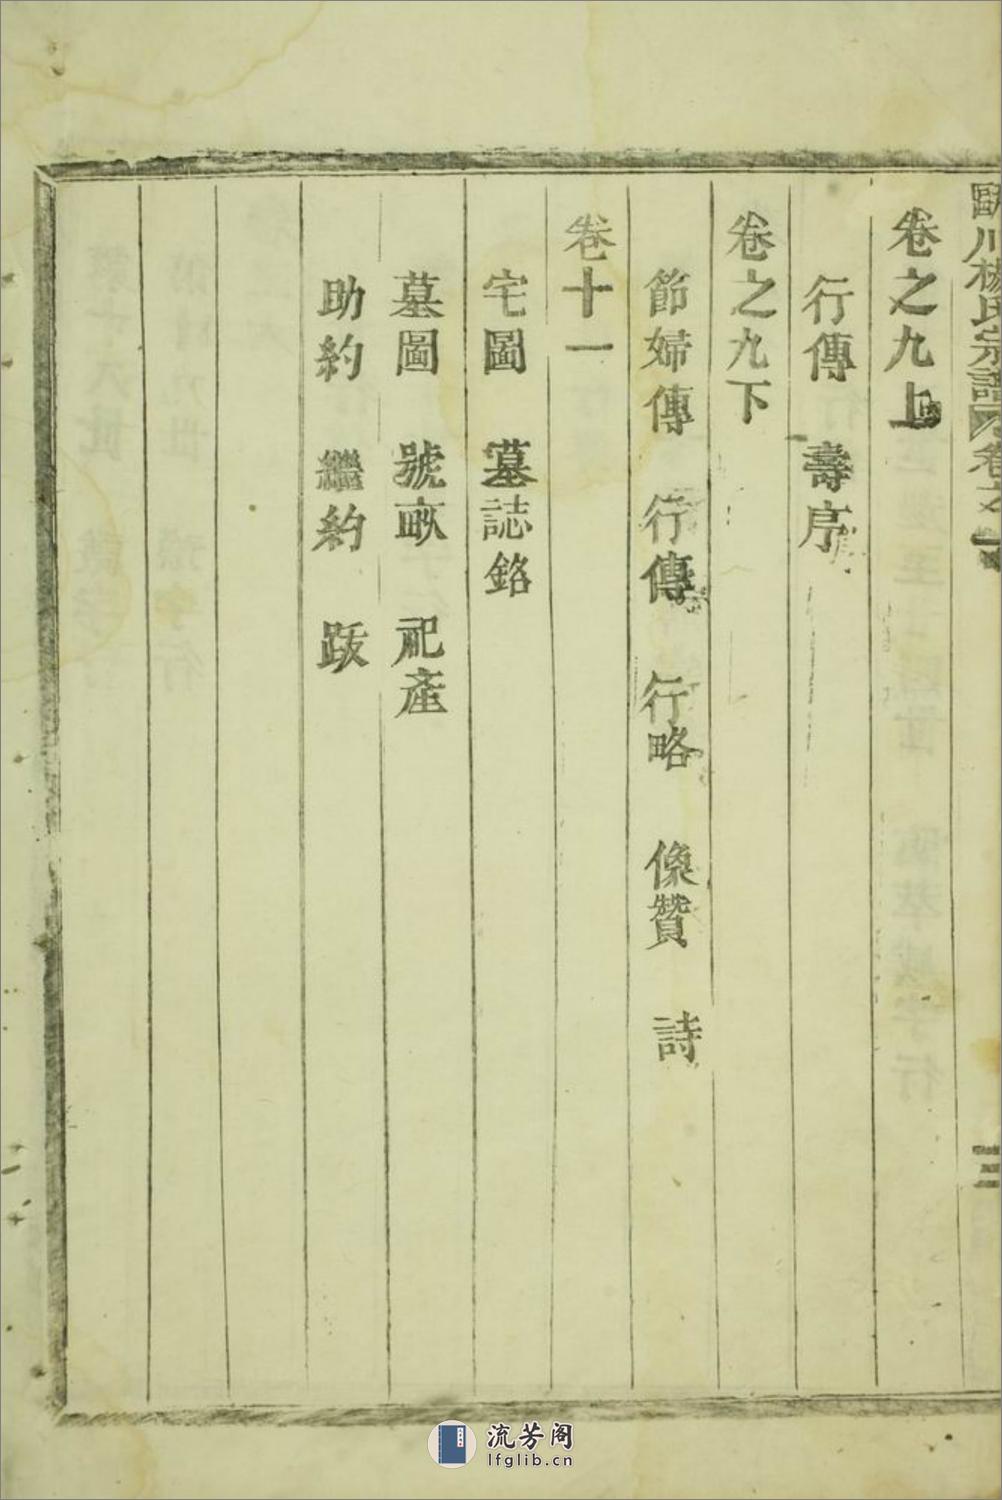 川楊氏宗譜 卷之一 三
卷之九上
行傳 壽序
卷之九下
節婦傳 行傳 行略 像贊 詩
卷十一
宅圖 墓誌銘
墓圖 號畝 祀產
助約 繼約 跋
流芳阁
lfglib.cn